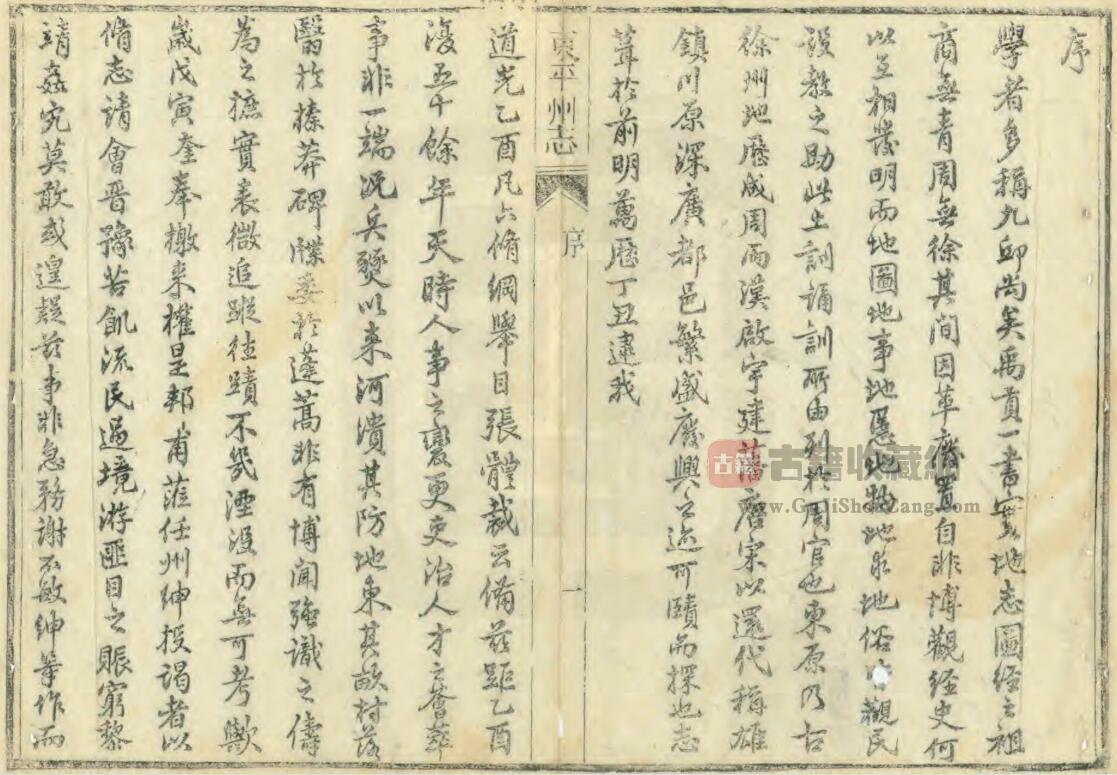 序
學者多稱九邱尚矣禹貢一書實地志圖經之祖
商無青周無徐其間因革廢置自非博觀經史何
以互相發明而地圖地事地慝地物地求地俗皆觀民
設教之助此土訓誦訓所由列於周官也東原乃古
徐州地歷成周兩漢啟宇建藩唐宋以還代稱雄
鎮川原深廣都邑繁盛廢興之迹可賾而探也志
葺於前明萬歷丁丑逮我
東平州志
序
一
道光乙酉凡六脩綱舉目張體裁云備茲距乙酉
復五十餘年天時人事之變更吏治人才之薈萃
事非一端況兵燹以來河潰其防地東其畝村落
翳於榛莽碑牒委於蓬蒿非有博聞強識之儔
為之摭實表微追蹤往蹟不幾湮沒而無可考歟
歲戊寅奎奉檄来權是邦甫蒞任州紳授謁者以
脩志請會晋豫苦飢流民過境游匪目之賑窮黎
靖姦宄莫敢或遑疑茲事非急務謝不敏紳等作而
古籍
www.GuJiShouCang.com